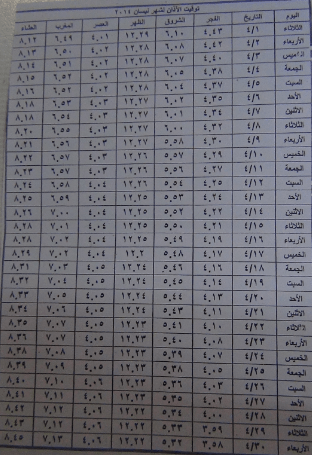 توقيت الأذان لشهر نيسان ٢٠١٤
اليوم التاريخ الفجر الشروق الظهر العصر المغرب العشاء
الثلاثاء ٤/١ ٤,٤٣ ٦,١٠ ١٢,٢٩ ٤,٠١ ٦,٤٩ ٨,١٢
الأربعاء ٤/٢ ٤,٤٢ ٦,٠٨ ١٢,٢٨ ٤,٠٢ ٦,٥٠ ٨,١٣
الخميس ٤/٣ ٤,٤٠ ٦,٠٧ ١٢,٢٨ ٤,٠٢ ٦,٥١ ٨,١٤
الجمعة ٤/٤ ٤,٣٨ ٦,٠٥ ١٢,٢٨ ٤,٠٢ ٦,٥٢ ٨,١٥
السبت ٤/٥ ٤,٣٧ ٦,٠٤ ١٢,٢٨ ٤,٠٢ ٦,٥٢ ٨,١٦
الأحد ٤/٦ ٤,٣٥ ٦,٠٢ ١٢,٢٧ ٤,٠٣ ٦,٥٣ ٨,١٨
الاثنين ٤/٧ ٤,٣٤ ٦,٠١ ١٢,٢٧ ٤,٠٣ ٦,٥٤ ٨,١٨
الثلاثاء ٤/٨ ٤,٣٢ ٦,٠٠ ١٢,٢٧ ٤,٠٣ ٦,٥٥ ٨,٢٠
الأربعاء ٤/٩ ٤,٣٠ ٥,٥٨ ١٢,٢٧ ٤,٠٣ ٦,٥٦ ٨,٢١
الخميس ٤/١٠ ٤,٢٩ ٥,٥٧ ١٢,٢٦ ٤,٠٣ ٦,٥٧ ٨,٢٢
الجمعة ٤/١١ ٤,٢٧ ٥,٥٦ ١٢,٢٦ ٤,٠٤ ٦,٥٧ ٨,٢٣
السبت ٤/١٢ ٤,٢٥ ٥,٥٤ ١٢,٢٦ ٤,٠٤ ٦,٥٨ ٨,٢٤
الأحد ٤/١٣ ٤,٢٤ ٥,٥٣ ١٢,٢٥ ٤,٠٤ ٦,٥٩ ٨,٢٥
الاثنين ٤/١٤ ٤,٢٢ ٥,٥٢ ١٢,٢٥ ٤,٠٤ ٧,٠٠ ٨,٢٦
الثلاثاء ٤/١٥ ٤,٢١ ٥,٥٠ ١٢,٢٥ ٤,٠٤ ٧,٠١ ٨,٢٨
الأربعاء ٤/١٦ ٤,١٩ ٥,٤٩ ١٢,٢٥ ٤,٠٤ ٧,٠٢ ٨,٢٨
الخميس ٤/١٧ ٤,١٧ ٥,٤٨ ١٢,٢ ٤,٠٤ ٧,٠٢ ٨,٢٩
الجمعة ٤/١٨ ٤,١٦ ٥,٤٦ ١٢,٢٤ ٤,٠٥ ٧,٠٣ ٨,٣١
السبت ٤/١٩ ٤,١٤ ٥,٤٥ ١٢,٢٤ ٤,٠٥ ٧,٠٤ ٨,٣٢
الأحد ٤/٢٠ ٤,١٣ ٥,٤٤ ١٢,٢٤ ٤,٠٥ ٧,٠٥ ٨,٣٣
الاثنين ٤/٢١ ٤,١١ ٥,٤٣ ١٢,٢٤ ٤,٠٥ ٧,٠٦ ٨,٣٤
الثلاثاء ٤/٢٢ ٤,١٠ ٥,٤١ ١٢,٢٣ ٤,٠٥ ٧,٠٧ ٨,٣٥
الأربعاء ٤/٢٣ ٤,٠٨ ٥,٤٠ ١٢,٢٣ ٤,٠٥ ٧,٠٧ ٨,٣٦
الخميس ٤/٢٤ ٤,٠٧ ٥,٣٩ ١٢,٢٣ ٤,٠٥ ٧,٠٨ ٨,٣٨
الجمعة ٤/٢٥ ٤,٠٥ ٥,٣٨ ١٢,٢٣ ٤,٠٥ ٧,٠٩ ٨,٣٩
السبت ٤/٢٦ ٤,٠٣ ٥,٣٦ ١٢,٢٣ ٤,٠٦ ٧,١٠ ٨,٤٠
الأحد ٤/٢٧ ٤,٠٢ ٥,٣٥ ١٢,٢٣ ٤,٠٦ ٧,١١ ٨,٤١
الاثنين ٤/٢٨ ٤,٠٠ ٥,٣٤ ١٢,٢٢ ٤,٠٦ ٧,١٢ ٨,٤٢
الثلاثاء ٤/٢٩ ٥,٣٣ ١٢,٢٢ ٤,٠٦ ٧,١٢ ٨,٤٣
الأربعاء ٤/٣٠ ٣,٥٨ ٥,٣٢ ١٢,٢٢ ٤,٠٦ ٧,١٣ ٨,٤٥